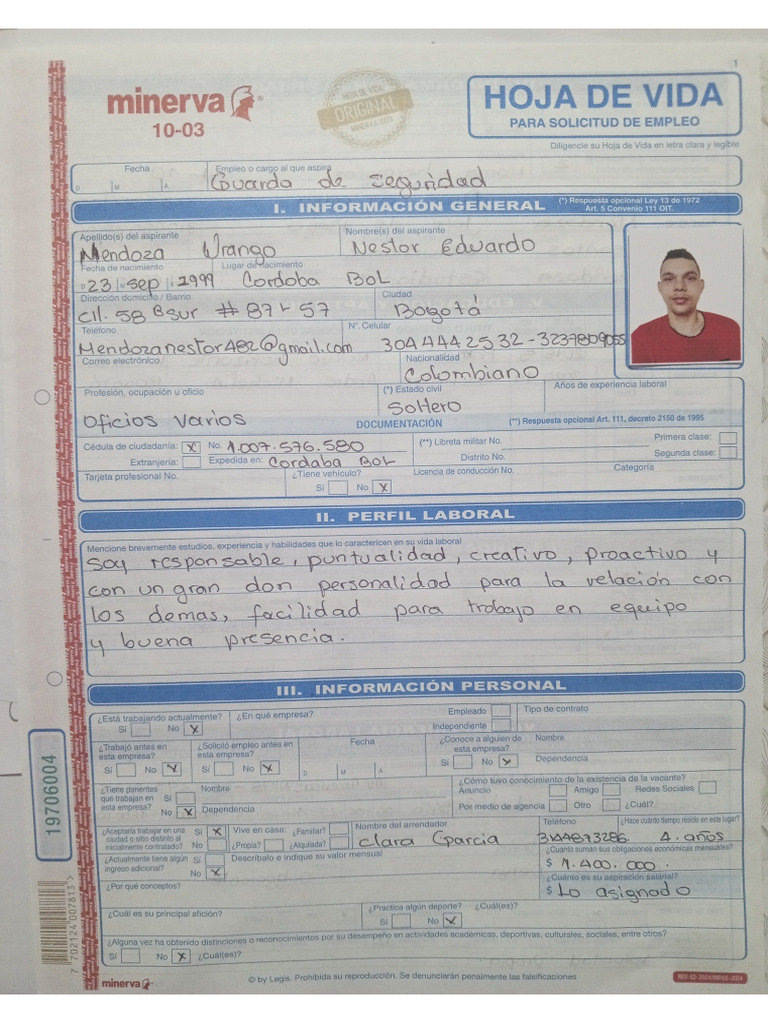 1
minerva
10-03
HOJA DE VIDA
ORIGINAL
MINERVA 1003
HOJA DE VIDA
PARA SOLICITUD DE EMPLEO
Diligencie su Hoja de Vida en letra clara y legible
Fecha
D M A
Empleo o cargo al que aspira
Guarda de seguridad
I. INFORMACIÓN GENERAL
(*) Respuesta opcional Ley 13 de 1972
Art. 5 Convenio 111 OIT.
Apellido(s) del aspirante
Mendoza Urango
Nombre(s) del aspirante
Nestor Eduardo
Fecha de nacimiento
D 23 M sep A 1999
Lugar de nacimiento
Cordoba BOL
Dirección domicilio / Barrio
Cll. 58 B sur # 87-57
Ciudad
Bogota
Teléfono
Mendozanestor482@gmail.com
N°. Celular
3044442532 - 3237809055
Correo electrónico
Nacionalidad
Colombiano
Profesión, ocupación u oficio
Oficios varios
(*) Estado civil
Soltero
Años de experiencia laboral
DOCUMENTACIÓN
(**) Respuesta opcional Art. 111, decreto 2150 de 1995
Cédula de ciudadanía: X No. 1.007.576.580
Extranjería: Expedida en: Cordaba BOL
(**) Libreta militar No.
Distrito No.
Primera clase:
Segunda clase:
Tarjeta profesional No.
¿Tiene vehículo?
Sí No X
Licencia de conducción No.
Categoría
II. PERFIL LABORAL
Mencione brevemente estudios, experiencia y habilidades que lo caractericen en su vida laboral
Soy responsable, puntualidad, creativo, proactivo y
con un gran don personalidad para la relación con
los demas, facilidad para trabajo en equipo
y buena presencia.
III. INFORMACIÓN PERSONAL
¿Está trabajando actualmente?
Sí No X
¿En qué empresa?
Empleado
Independiente
Tipo de contrato
¿Trabajó antes en
esta empresa?
Sí No X
¿Solicitó empleo antes en
esta empresa?
Sí No X
Fecha
D M A
¿Conoce a alguien de
esta empresa?
Sí No X
Nombre
Dependencia
¿Tiene parientes
que trabajan en
esta empresa?
Sí
No X
Nombre
Dependencia
¿Cómo tuvo conocimiento de la existencia de la vacante?
Anuncio Amigo Redes Sociales
Por medio de agencia Otro ¿Cuál?
¿Aceptaría trabajar en una
ciudad o sitio distinto al
inicialmente contratado?
Sí X
No
Vive en casa: ¿Familiar?
¿Propia? ¿Alquilada?
Nombre del arrendador
Clara Garcia
Teléfono
3144873286
¿Hace cuánto tiempo reside en este lugar?
4. años
¿Actualmente tiene algún
ingreso adicional?
Sí
No X
Descríbalo e indique su valor mensual
¿Cuánto suman sus obligaciones económicas mensuales?
$ 1.400.000.
¿Por qué conceptos?
¿Cuánto es su aspiración salarial?
$ Lo asignado
¿Cuál es su principal afición?
¿Practica algún deporte?
Sí No X
¿Cuál(es)?
¿Alguna vez ha obtenido distinciones o reconocimientos por su desempeño en actividades académicas, deportivas, culturales, sociales, entre otros?
Sí No X ¿Cuál(es)?
minerva
© by Legis. Prohibida su reproducción. Se denunciarán penalmente las falsificaciones
19706004
7 702124 007813 >